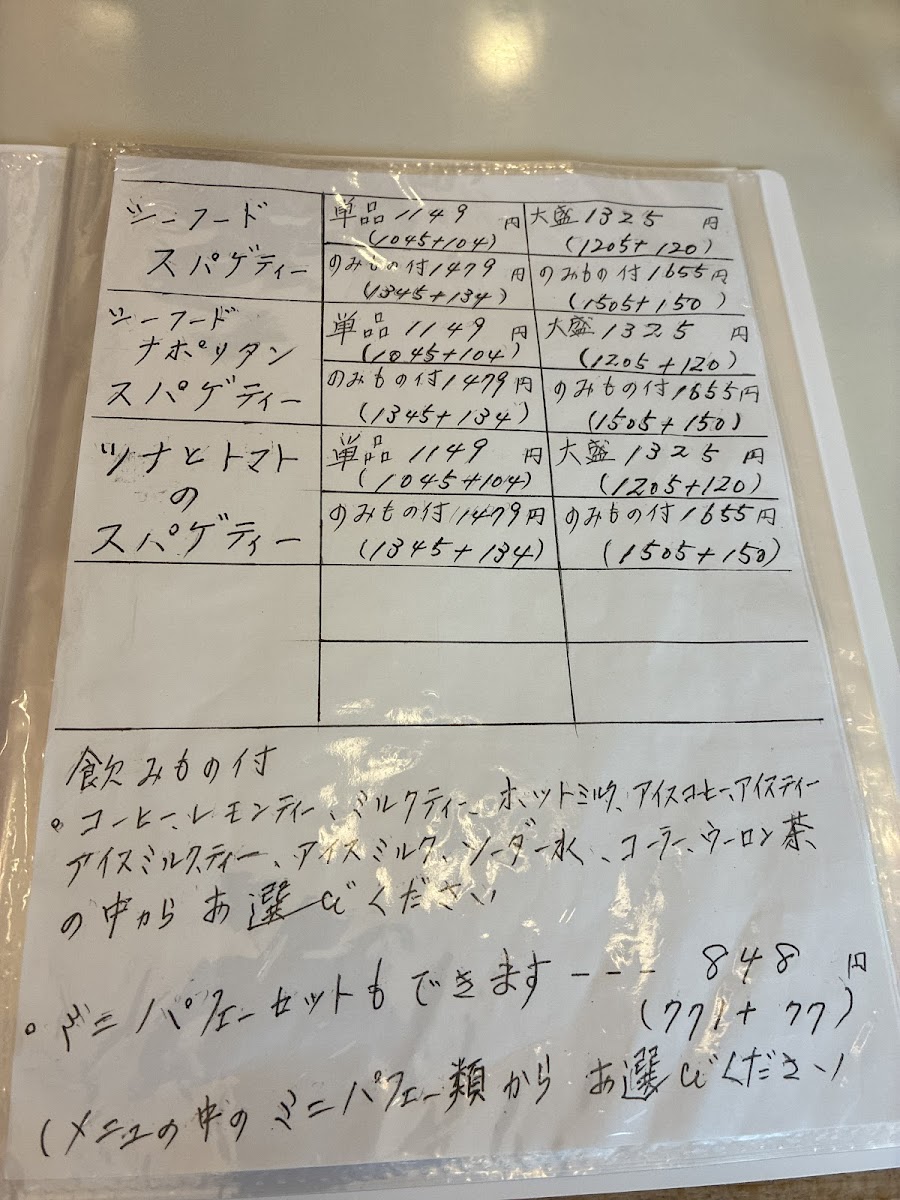 シーフード
スパゲティー
単品 1149円
(1045+104)
大盛 1325円
(1205+120)
のみもの付 1479円
(1345+134)
のみもの付 1655円
(1505+150)
シーフード
ナポリタン
スパゲティー
単品 1149円
(1045+104)
大盛 1325円
(1205+120)
のみもの付 1479円
(1345+134)
のみもの付 1655円
(1505+150)
ツナとトマト
の
スパゲティー
単品 1149円
(1045+104)
大盛 1325円
(1205+120)
のみもの付 1479円
(1345+134)
のみもの付 1655円
(1505+150)
飲みもの付
・コーヒー、レモンティー、ミルクティー、ホットミルク、アイスコーヒー、アイスティー
アイスミルクティー、アイスミルク、ソーダー水、コーラー、ウーロン茶
の中からお選びください
・ミニパフェーセットもできます--- 848円
(771+77)
(メニューの中のミニパフェー類からお選びください)